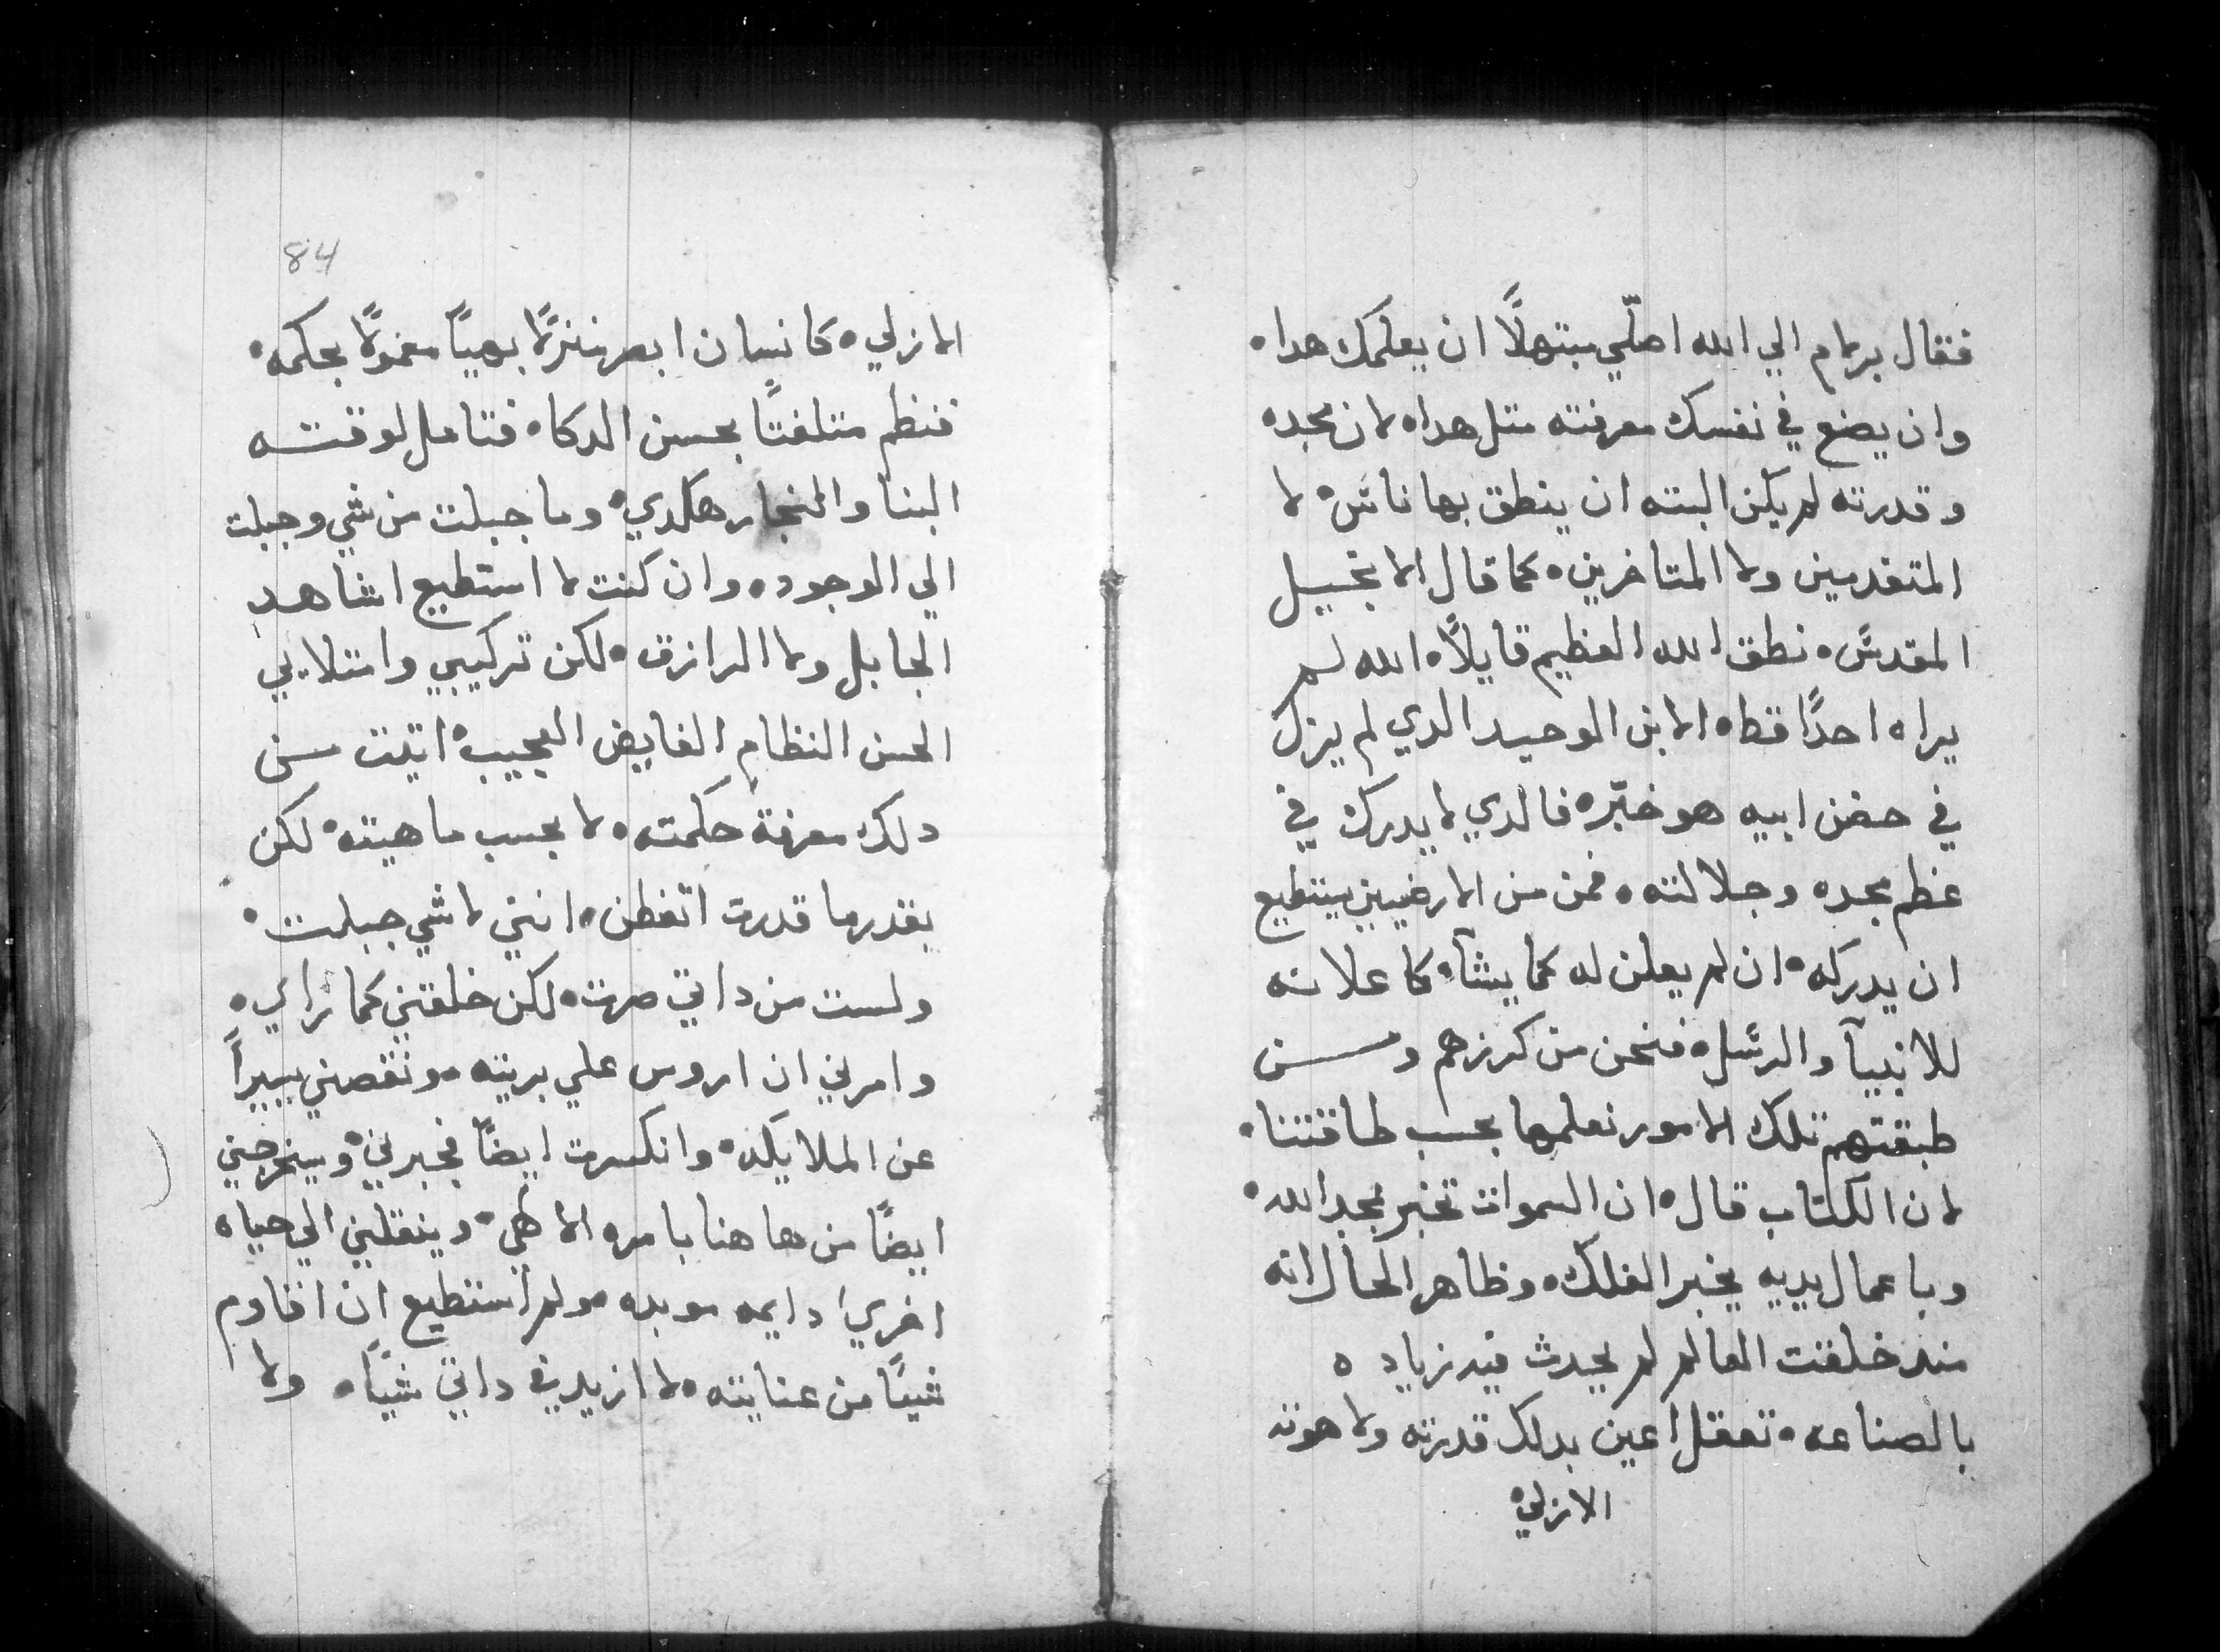 فقال برلام الي الله اصلّي مبتهلًا ان يعلمك هداه
وان يضع في نفسك معرفته متل هداه لان مجده
وقدرته لم يكن البته ان ينطق بها ناسٌ لا
المتقدمين ولا المتاخرين ه كما قال الانجيل
المقدسّ ه نطق الله العظيم قايلًا ه الله لم
يراه احدًا قط ه الابن الوحيد الدي لم يزل
في حضن ابيه هو خبّر ه فالدي لا يدرك في
عظم مجده وجلالته ه فمن من الارضيين يستطيع
ان يدركه ان لم يعلن له كما يشآ ه كاعلانه
للانبيآ والرسُل ه فنحن من كرزهم ومن
طبقتهم تلك الامور نعلمها بحسب طاقتنا ه
لان الكتاب قال ان السموات تخبر بمجد الله ه
وباعمال يديه يخبر الفلك ه وظاهر الحال انه
مند خلقت العالم لم يحدث فيه زياده
بالصناعه ه تعقل اعين بدلك قدرته ولاهوته
الازلي
84
الازلي ه كانسان ابصر منزلًا بهيًا معمولًا بحكمه ه
فنظم متلفتًا بحسن الدكاه فتامل لوقته
البنا والنجار هكدي ه وما جبلت من شي وجبلت
الي الوجود ه وان كنت لا استطيع اشاهد
الجابل ولا الرازق ه لكن تركيبي وامتلايي
الحسن النظام الفايض العجيب ه اتيت من
دلك معرفة حكمته ه لا بحسب ماهيته ه لكن
بقدر ما قدرت اتفطن ه انني لا شي جبلت ه
ولست من داتي صرت ه لكن خلقتني كما راي ه
وامرني ان اروس علي بريته ه ونقصني يسيرًا
عن الملايكه ه وانكسرت ايضًا فجبرني ه وسيخرجني
ايضًا من هاهنا بامره الالهي ه وينقلني الي حياه
اخري دايمه موبده ه ولم استطيع ان اقاوم
شيئًا من عنايته ه لا ازيد في داتي شيًا ه ولا